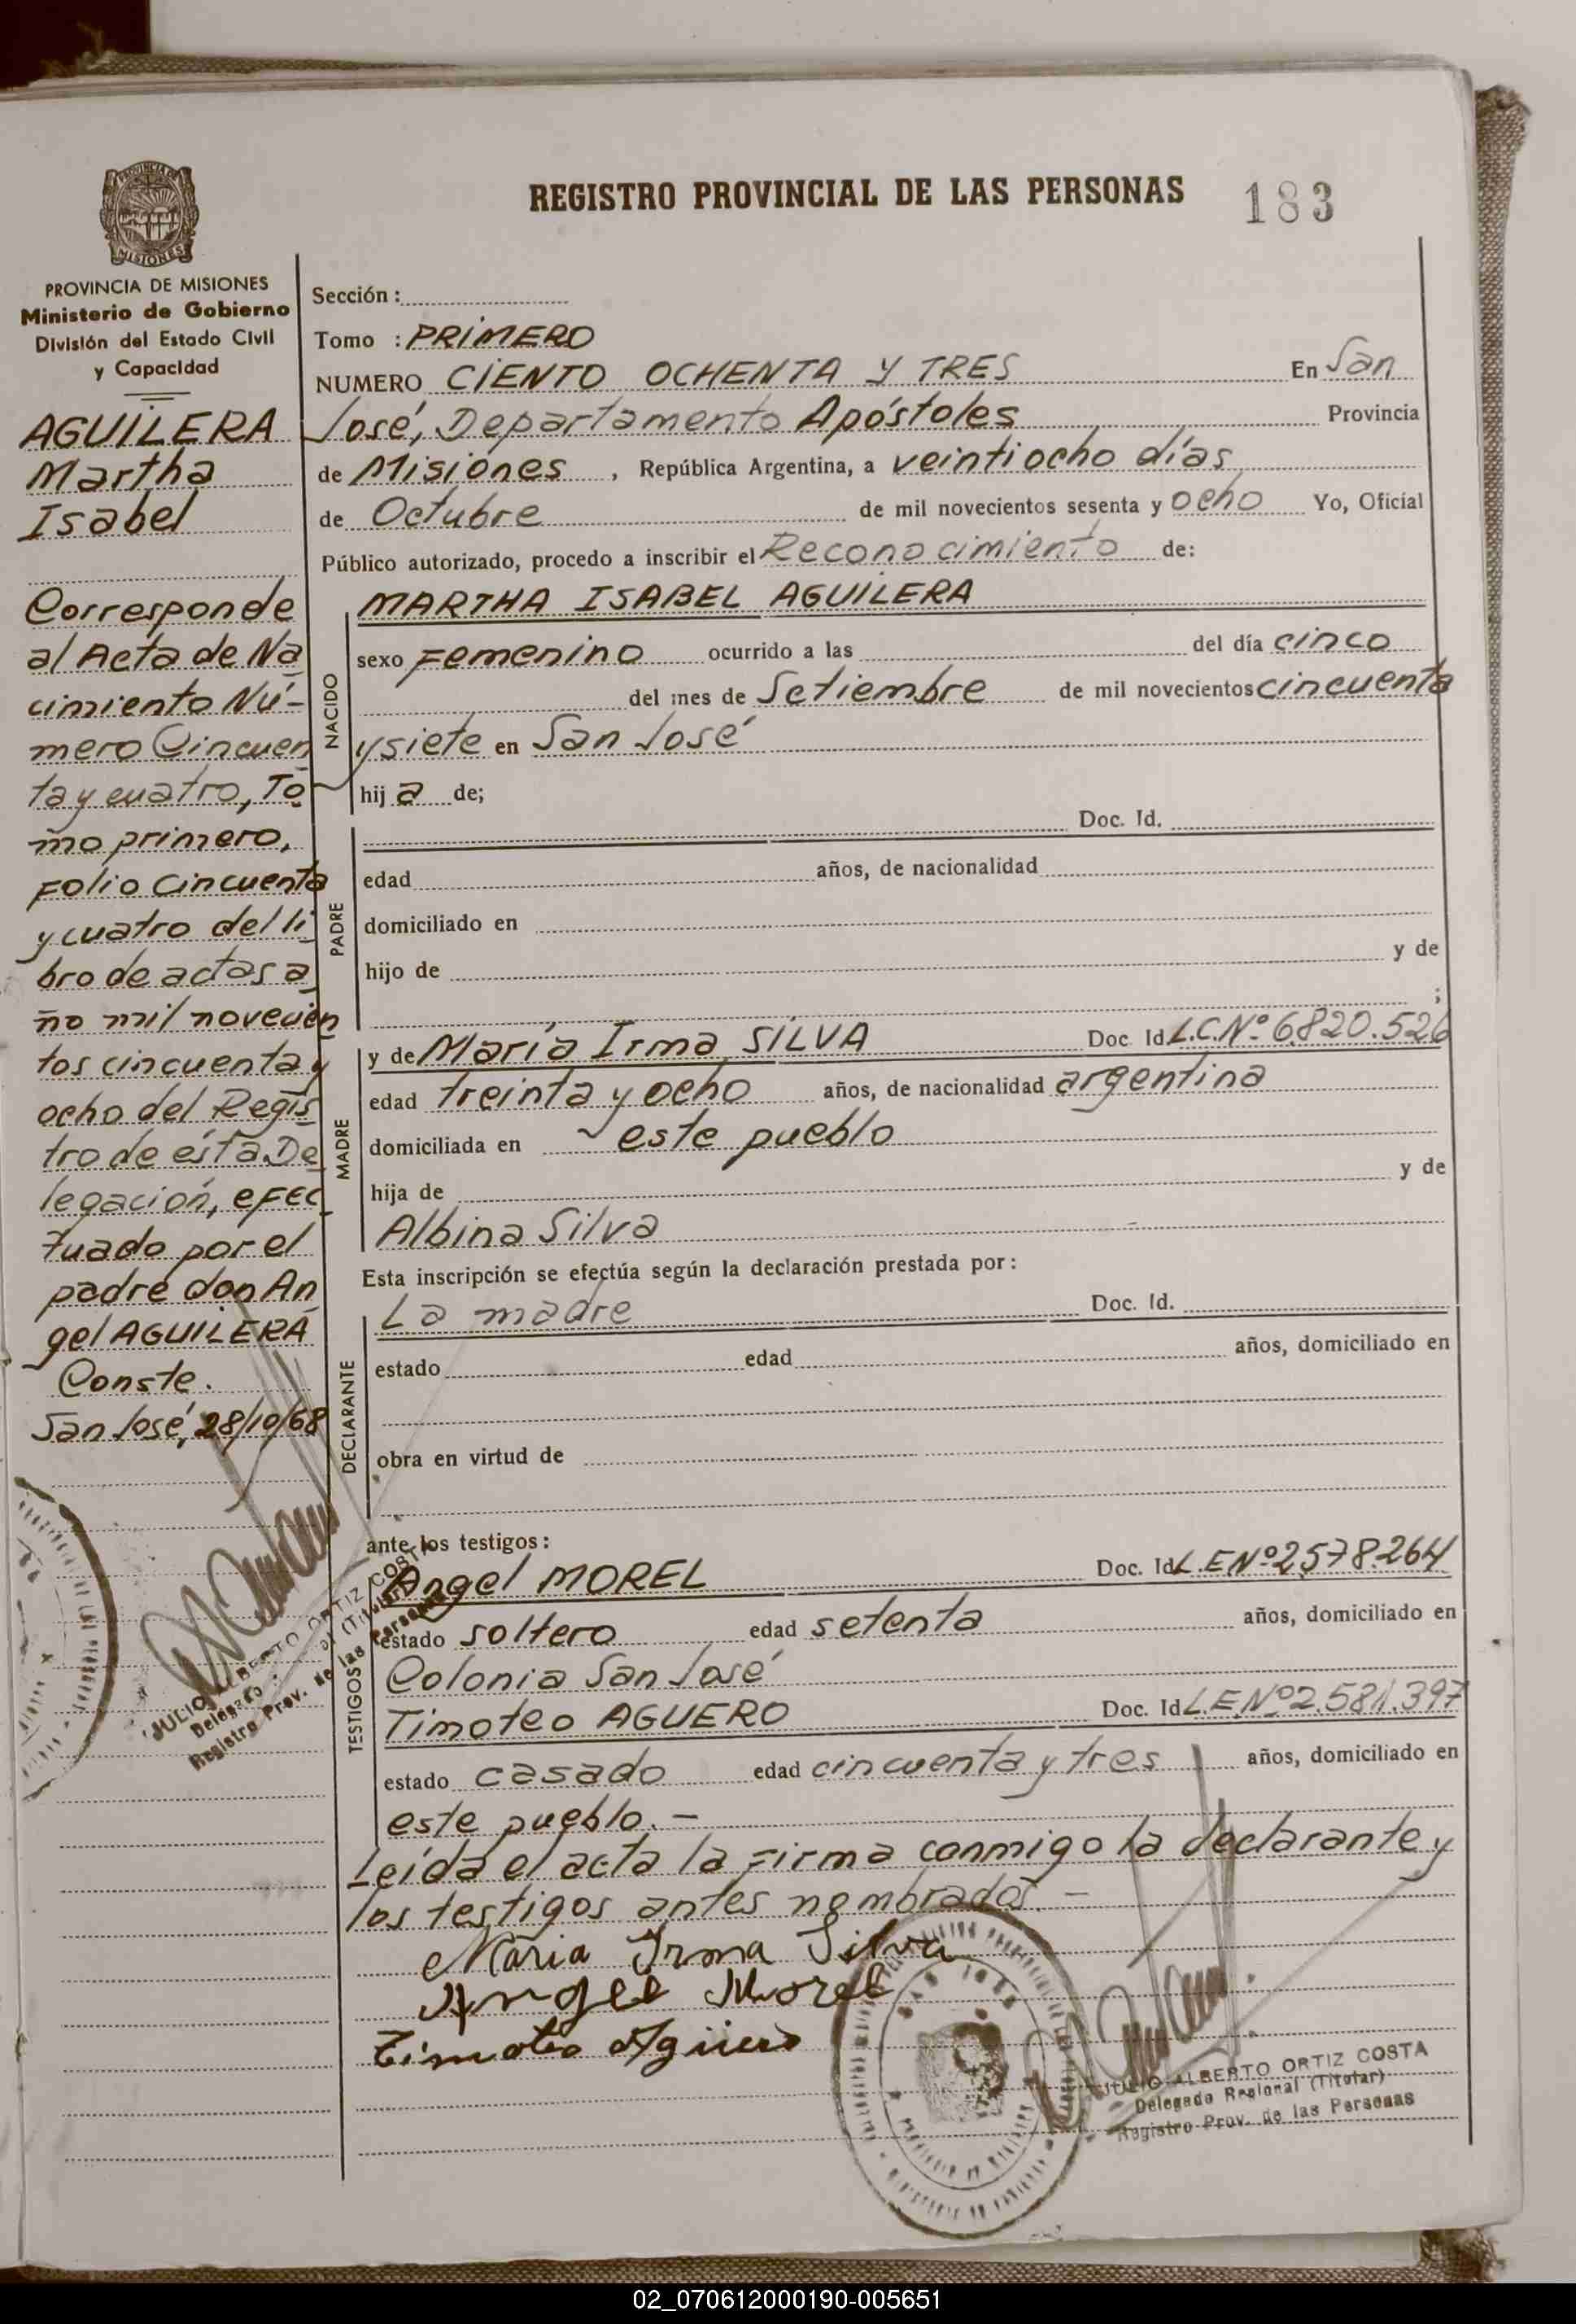 REGISTRO PROVINCIAL DE LAS PERSONAS 183
PROVINCIA DE MISIONES
Ministerio de Gobierno
División del Estado Civil
y Capacidad
AGUILERA
Martha
Isabel
Corresponde
al Acta de Na
cimiento Nú-
mero Cincuen
ta y cuatro, To
mo primero,
Folio Cincuenta
y cuatro del li
bro de actas a
ño mil novecien
tos cincuenta y
ocho del Regis
tro de ésta De
legación, efec
tuado por el
padre don An
gel AGUILERA
Conste.
San José, 28/10/68
JULIO ALBERTO ORTIZ COSTA
Delegado (Titular)
Registro Prov. de las Personas
Sección :
Tomo : PRIMERO
NUMERO CIENTO OCHENTA Y TRES En San
José, Departamento Apóstoles Provincia
de Misiones , República Argentina, a veintiocho días
de Octubre de mil novecientos sesenta y ocho Yo, Oficial
Público autorizado, procedo a inscribir el Reconocimiento de:
NACIDO
MARTHA ISABEL AGUILERA
sexo Femenino ocurrido a las del día cinco
del mes de Setiembre de mil novecientos cincuenta
y siete en San José
hij a de;
PADRE
Doc. Id.
edad años, de nacionalidad
domiciliado en
hijo de y de
;
MADRE
y de María Irma SILVA Doc Id L.C.Nº 6.820.526
edad treinta y ocho años, de nacionalidad argentina
domiciliada en este pueblo
hija de y de
Albina Silva
Esta inscripción se efectúa según la declaración prestada por :
DECLARANTE
La madre Doc. Id.
estado edad años, domiciliado en
obra en virtud de
ante los testigos :
TESTIGOS
Angel MOREL Doc. Id L.E Nº 2.578.264
estado soltero edad setenta años, domiciliado en
Colonia San José
Timoteo AGUERO Doc. Id L.E.Nº 2.581.397
estado casado edad cincuenta y tres años, domiciliado en
este pueblo. —
Leída el acta la firma conmigo la declarante y
los testigos antes nombrados. —
Maria Irma Silva
Angel Morel
Timoteo Agüero
JULIO ALBERTO ORTIZ COSTA
Delegado Regional (Titular)
Registro Prov. de las Personas
02_070612000190-005651